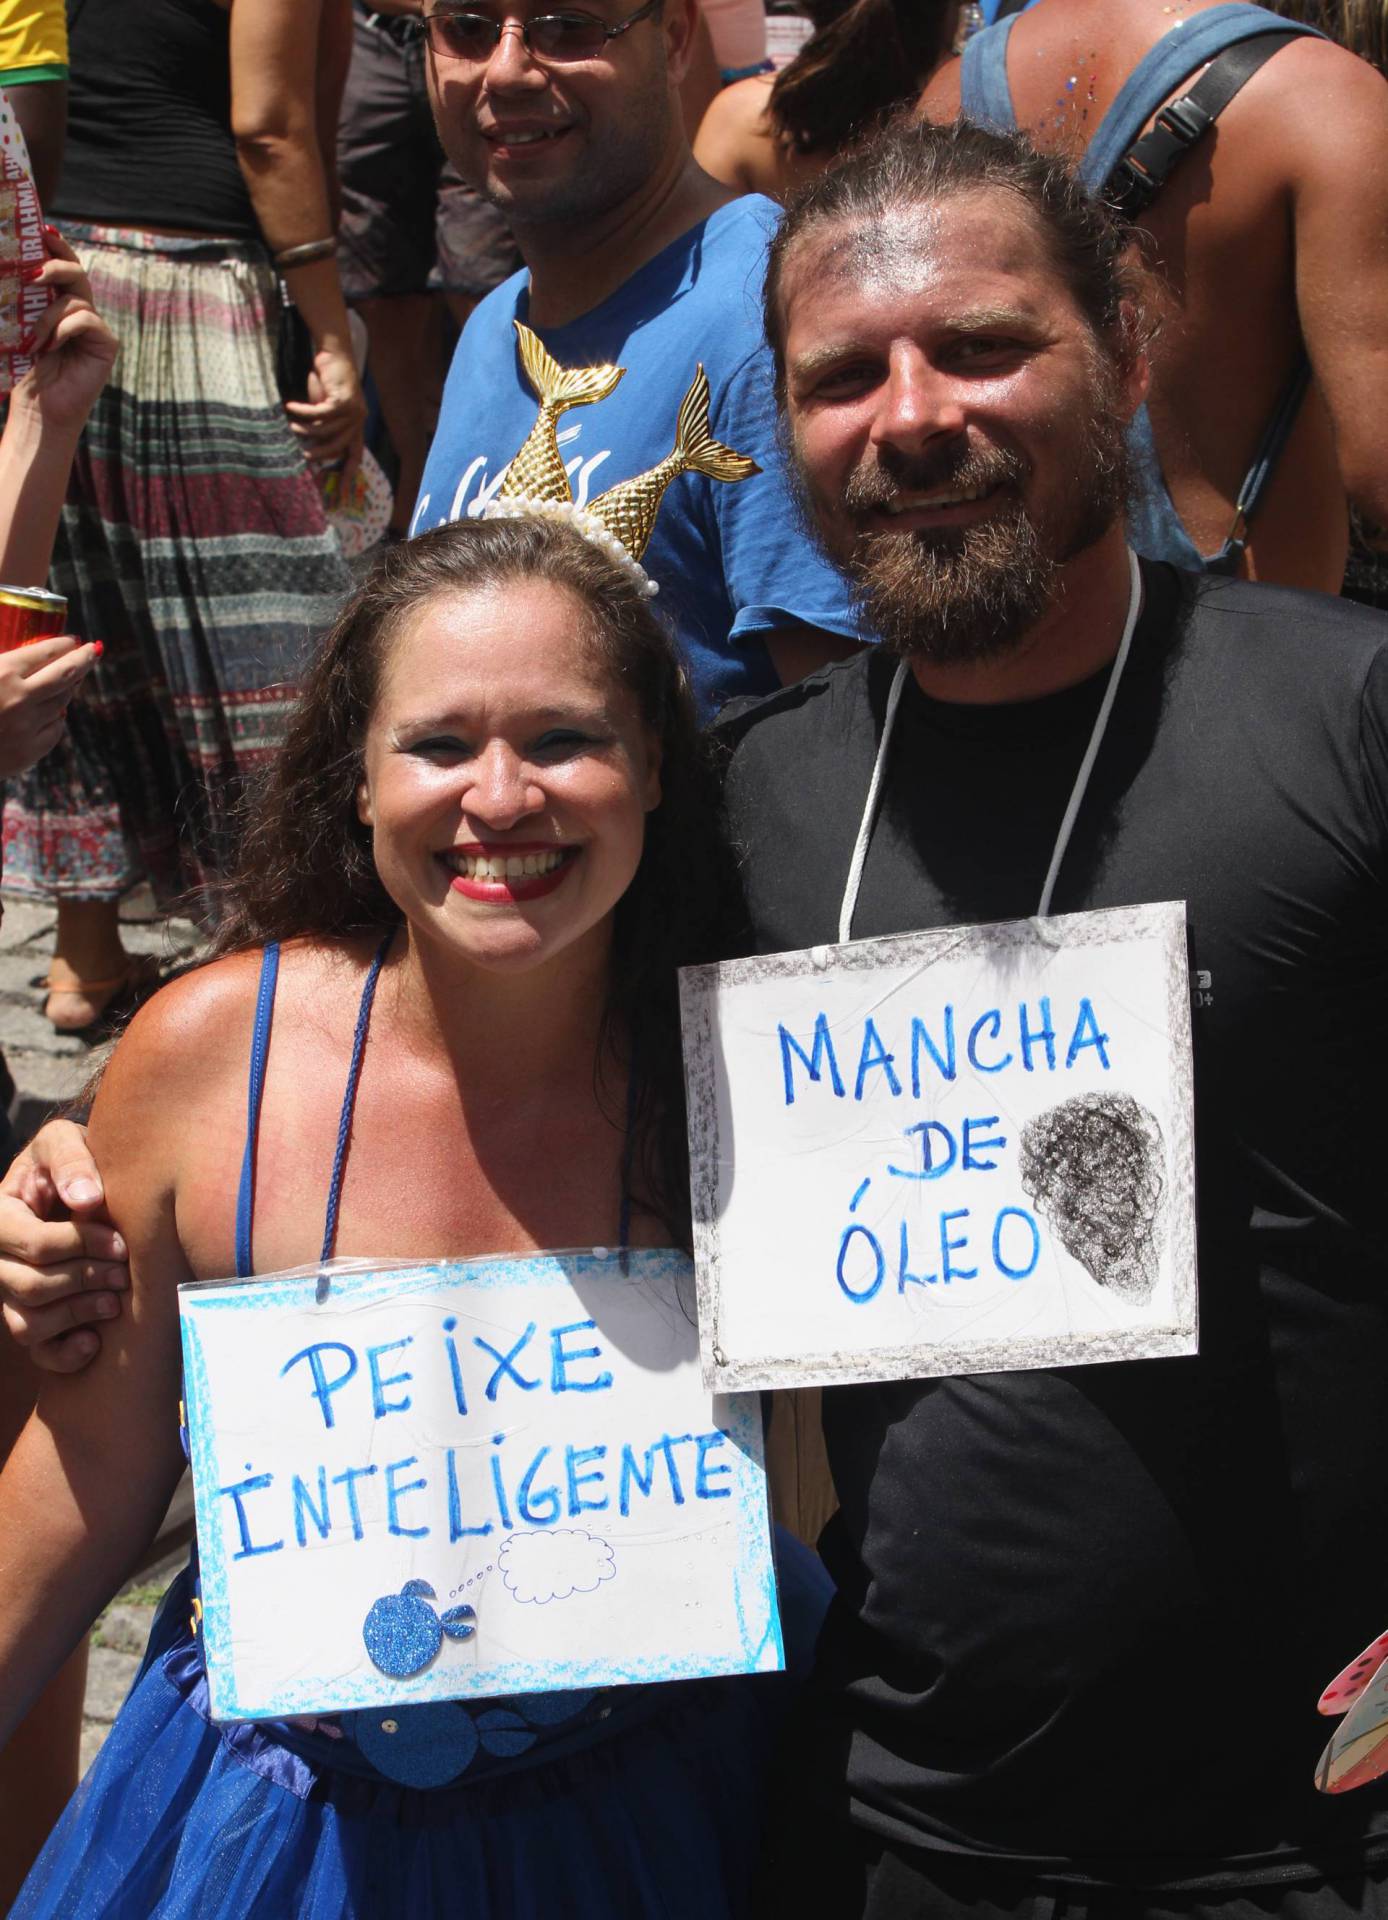 BRAHMA
PEIXE
INTELIGENTE
MANCHA
DE
ÓLEO